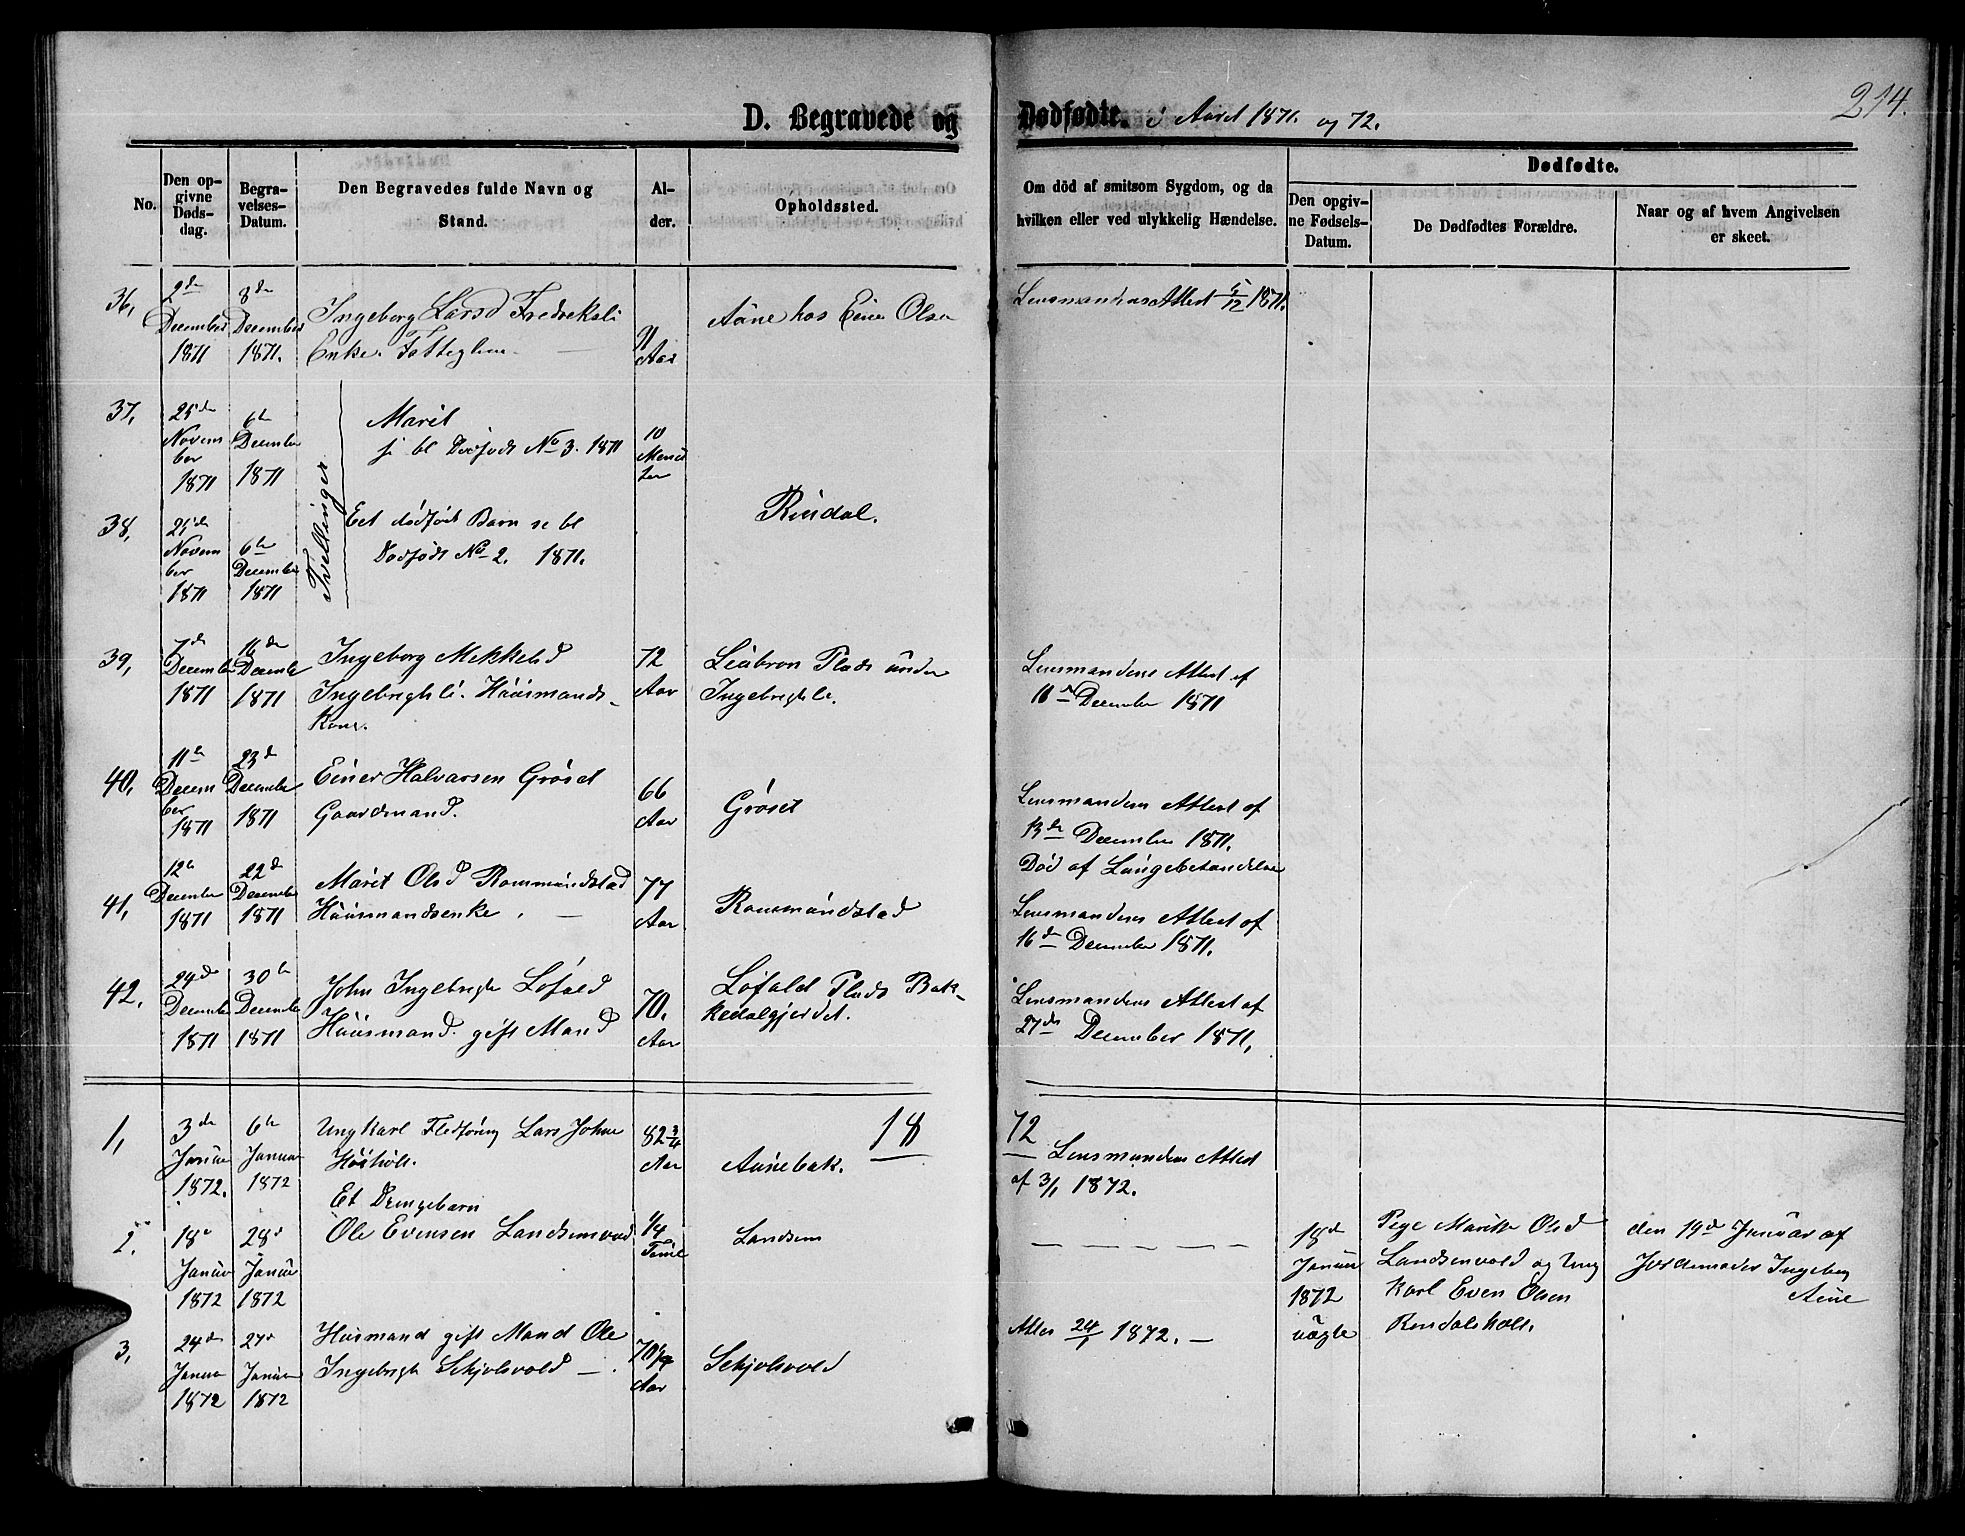 D. Begravede og Dødfødte. i Aaret 1871. og 72.
214.
No.
Den op-
givne
Døds-
dag.
Begra-
velses-
Datum.
Den Begravedes fulde Navn og
Stand.
Al-
der.
Opholdssted.
Om död af smitsom Sygdom, og da
hvilken eller ved ulykkelig Hændelse.
Dødfødte.
Den opgiv-
ne Fødsels-
Datum.
De Dødfødtes Forældre.
Naar og af hvem Angivelsen
er skeet.
36,
2den
December
1871
8de
December
1871.
Ingeborg Larsd Fredreksli
Enke. Fattiglem
91
Aar
Aune hos Einer Olsen
Lensmandens Attest 5/12 1871.
37,
25de
Novem
ber
1871
6te
December
1871
Tvillinger
Marit
10
38,
25de
Novem
ber
1871
6te
December
1871
Eet dødfødt Barn se bl
Dødfødt No 2. 1871.
Rindal.
39,
7de
December
1871
16de
December
1871
Ingeborg Mekkelsd
Ingebrigtsli. Huusmands-
kone.
72
Aar
Liabroen Plads under
Ingebrigtsli.
Lensmandens Attest af
10de December 1871
40,
11te
Decem
ber
1871
23de
December
1871
Einer Halvorsen Grøset
Gaardmand.
66
Aar
Grøset
Lensmandens Attest af
13de December 1871.
Død af Lungebetændelse
41,
12te
December
1871
22de
December
1871
Marit Olsd Rommundstad
Huusmandsenke,
77
Aar
Rommundstad
Lensmandens Attest af
16de December 1871.
42,
24de
December
1871
30te
December
1871
John Ingebrigts Løfald
Huusmand. gift Mand
70.
Aar
Løfald Plads Bak-
kedalgjerdet.
Lensmandens Attest af
27de December 1871.
18 72
1,
3de
Januar
1872.
6te
Januar
1872
Ungkarl Fledføring Lars Johns
82 3/4
Aar
Aunebak.
Lensmandens Attest
af 3/1 1872.
2.
18de
Januar
1872
28de
Januar
1872
Et Drengebarn
Ole Evensen Landsemvold
1/4
Time
Landsem
18de
Januar
1872
uægte
Pige Marit Olsd
Landsemvold og Ung
karl Even Olsen
Rindalsholt.
den 19de Januar af
Jordemoder Ingeborg
Aune
3,
24de
Januar
1872
27de
Januar
1872
Husmand gift Mand Ole
Ingebrigts Sekjolsvold
70 1/4
Aar
Sekjolsvold
Attes 24/1 1872.